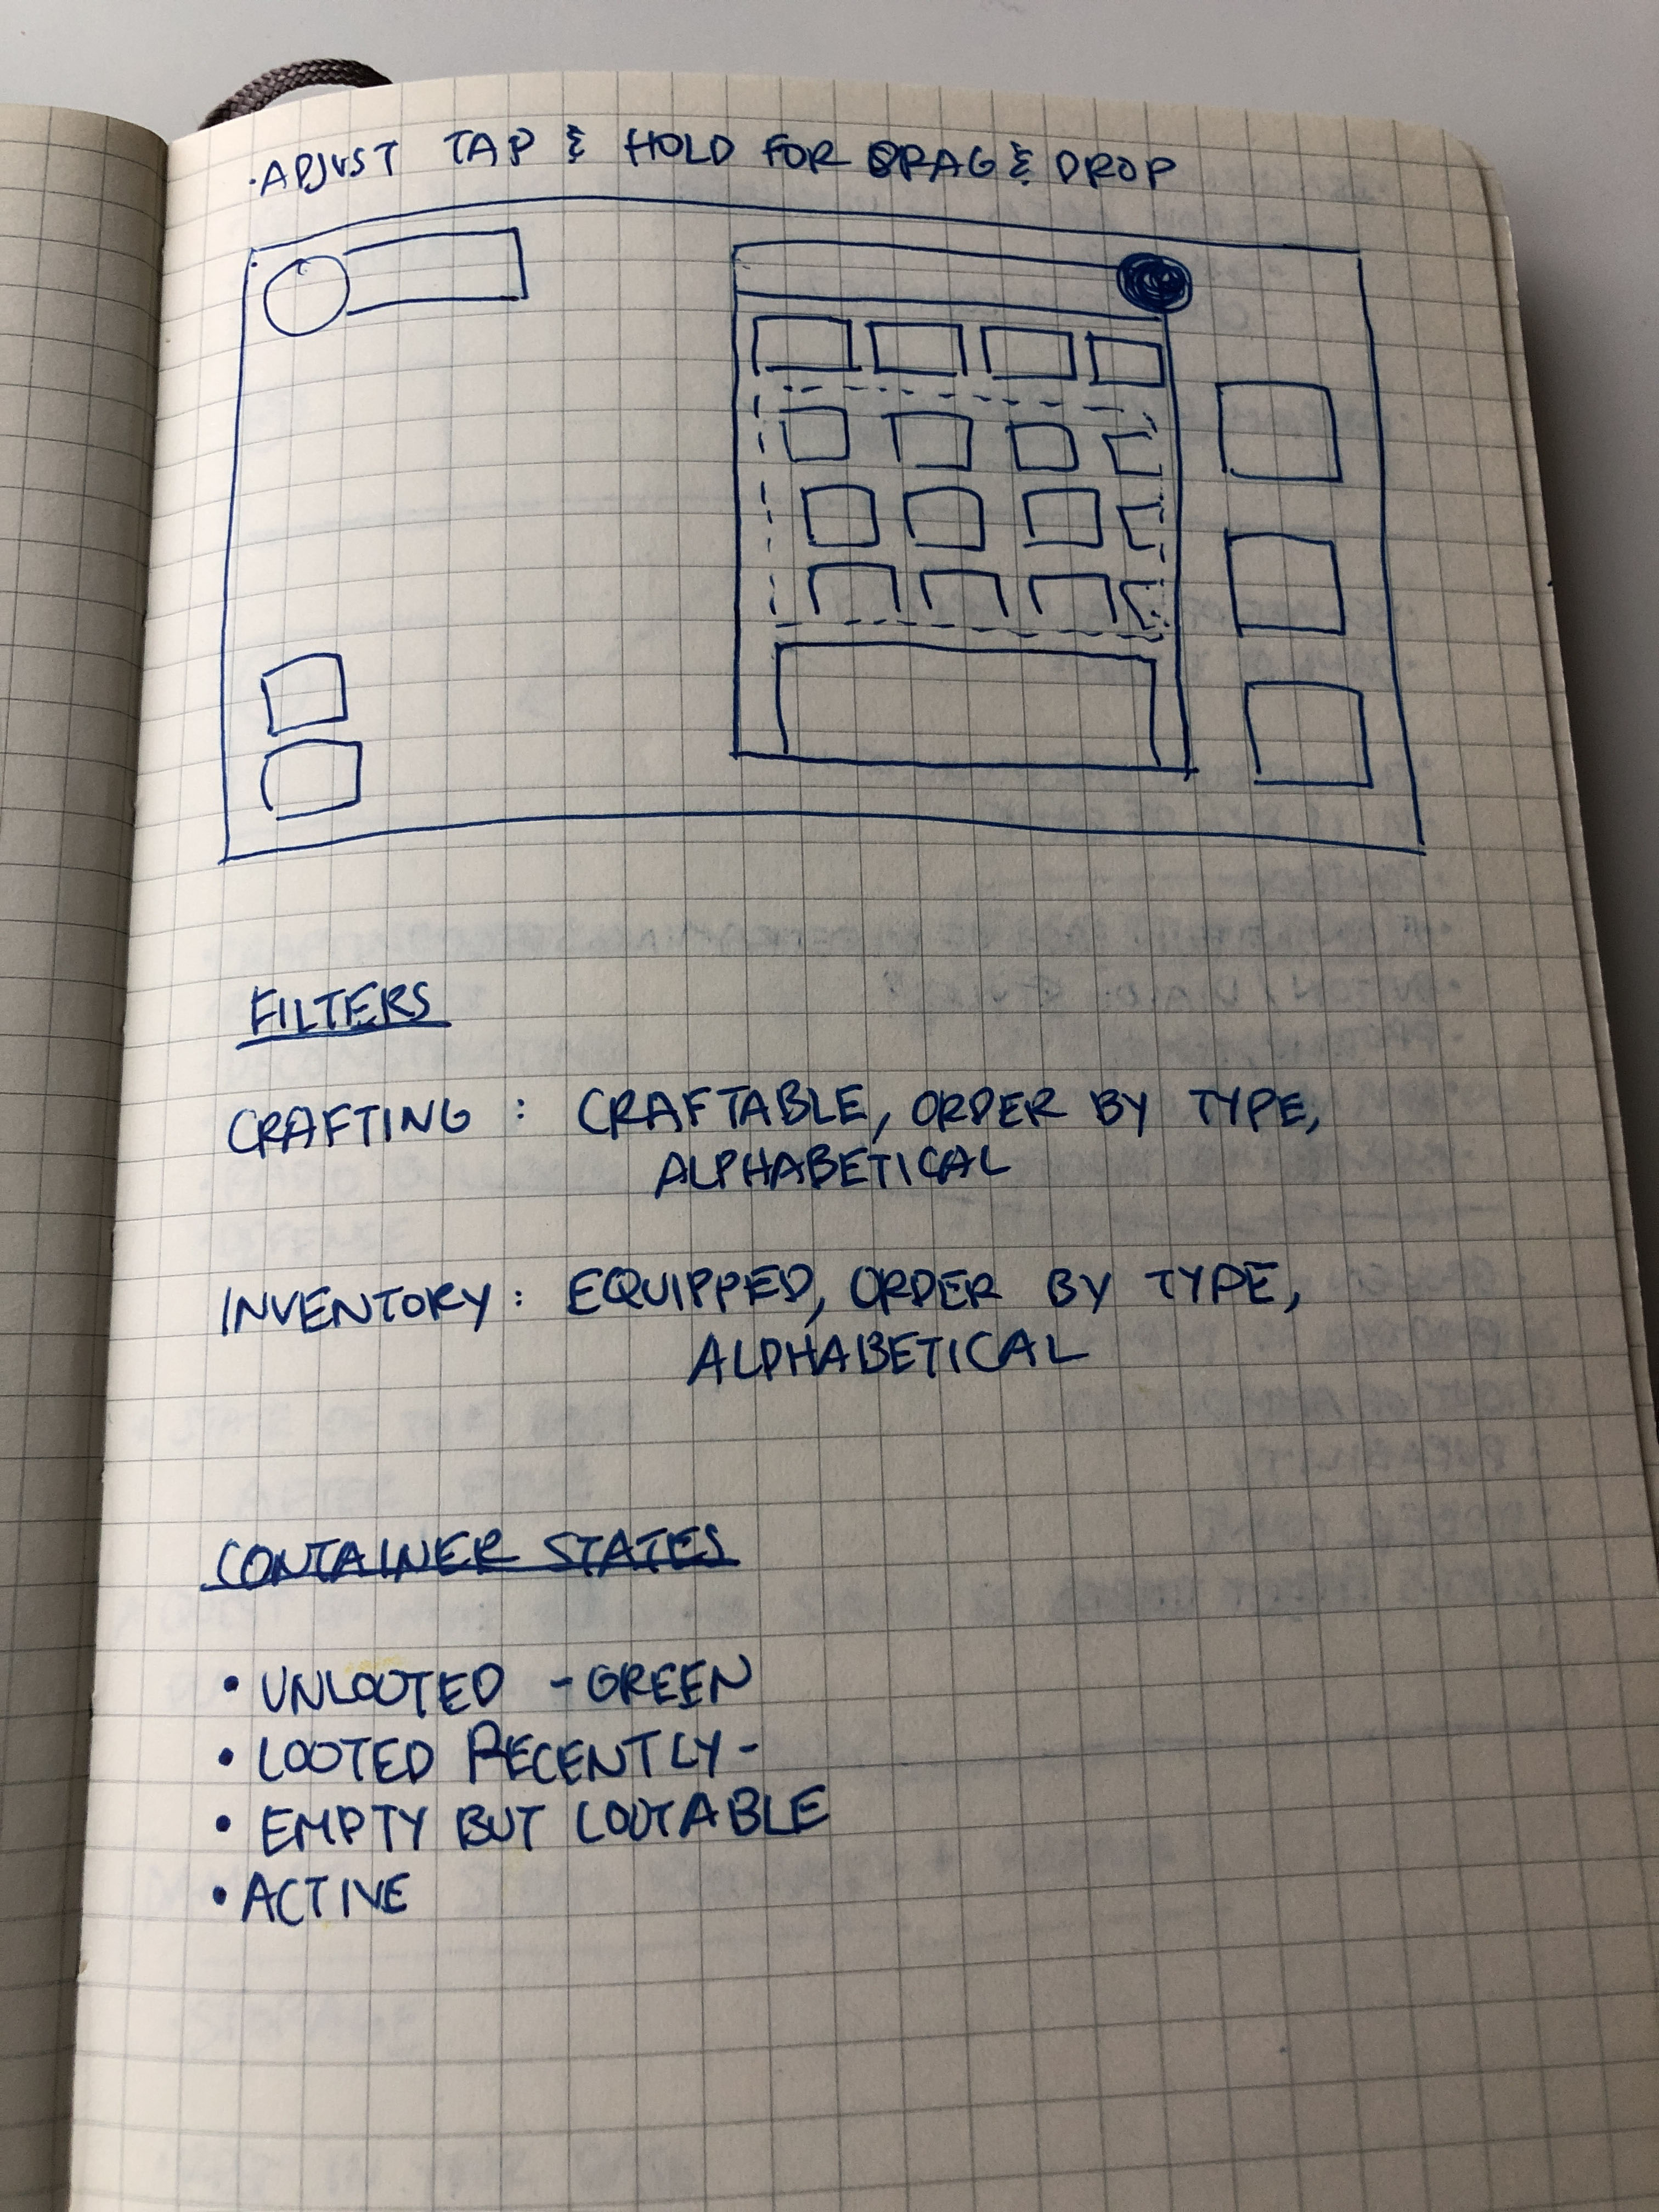 ·ADJUST TAP & HOLD FOR DRAG & DROP
FILTERS
CRAFTING : CRAFTABLE, ORDER BY TYPE,
ALPHABETICAL
INVENTORY: EQUIPPED, ORDER BY TYPE,
ALPHABETICAL
CONTAINER STATES
• UNLOOTED - GREEN
• LOOTED RECENTLY -
• EMPTY BUT LOOTABLE
• ACTIVE